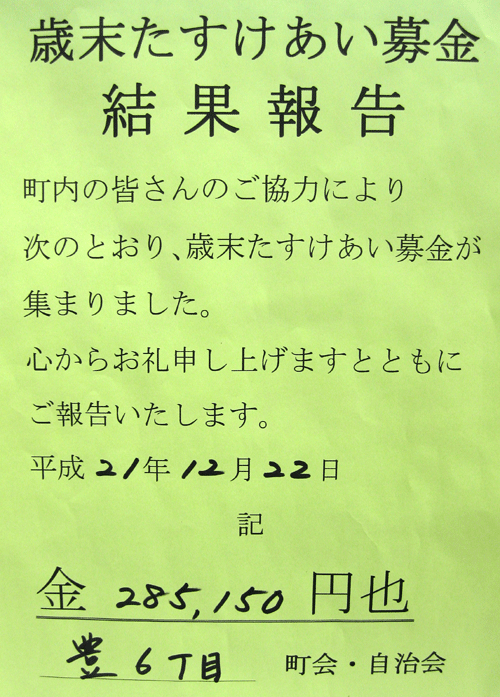 歳末たすけあい募金
結果報告
町内の皆さんのご協力により
次のとおり、歳末たすけあい募金が
集まりました。
心からお礼申し上げますとともに
ご報告いたします。
平成21年12月22日
記
金 285,150 円也
豊6丁目 町会・自治会